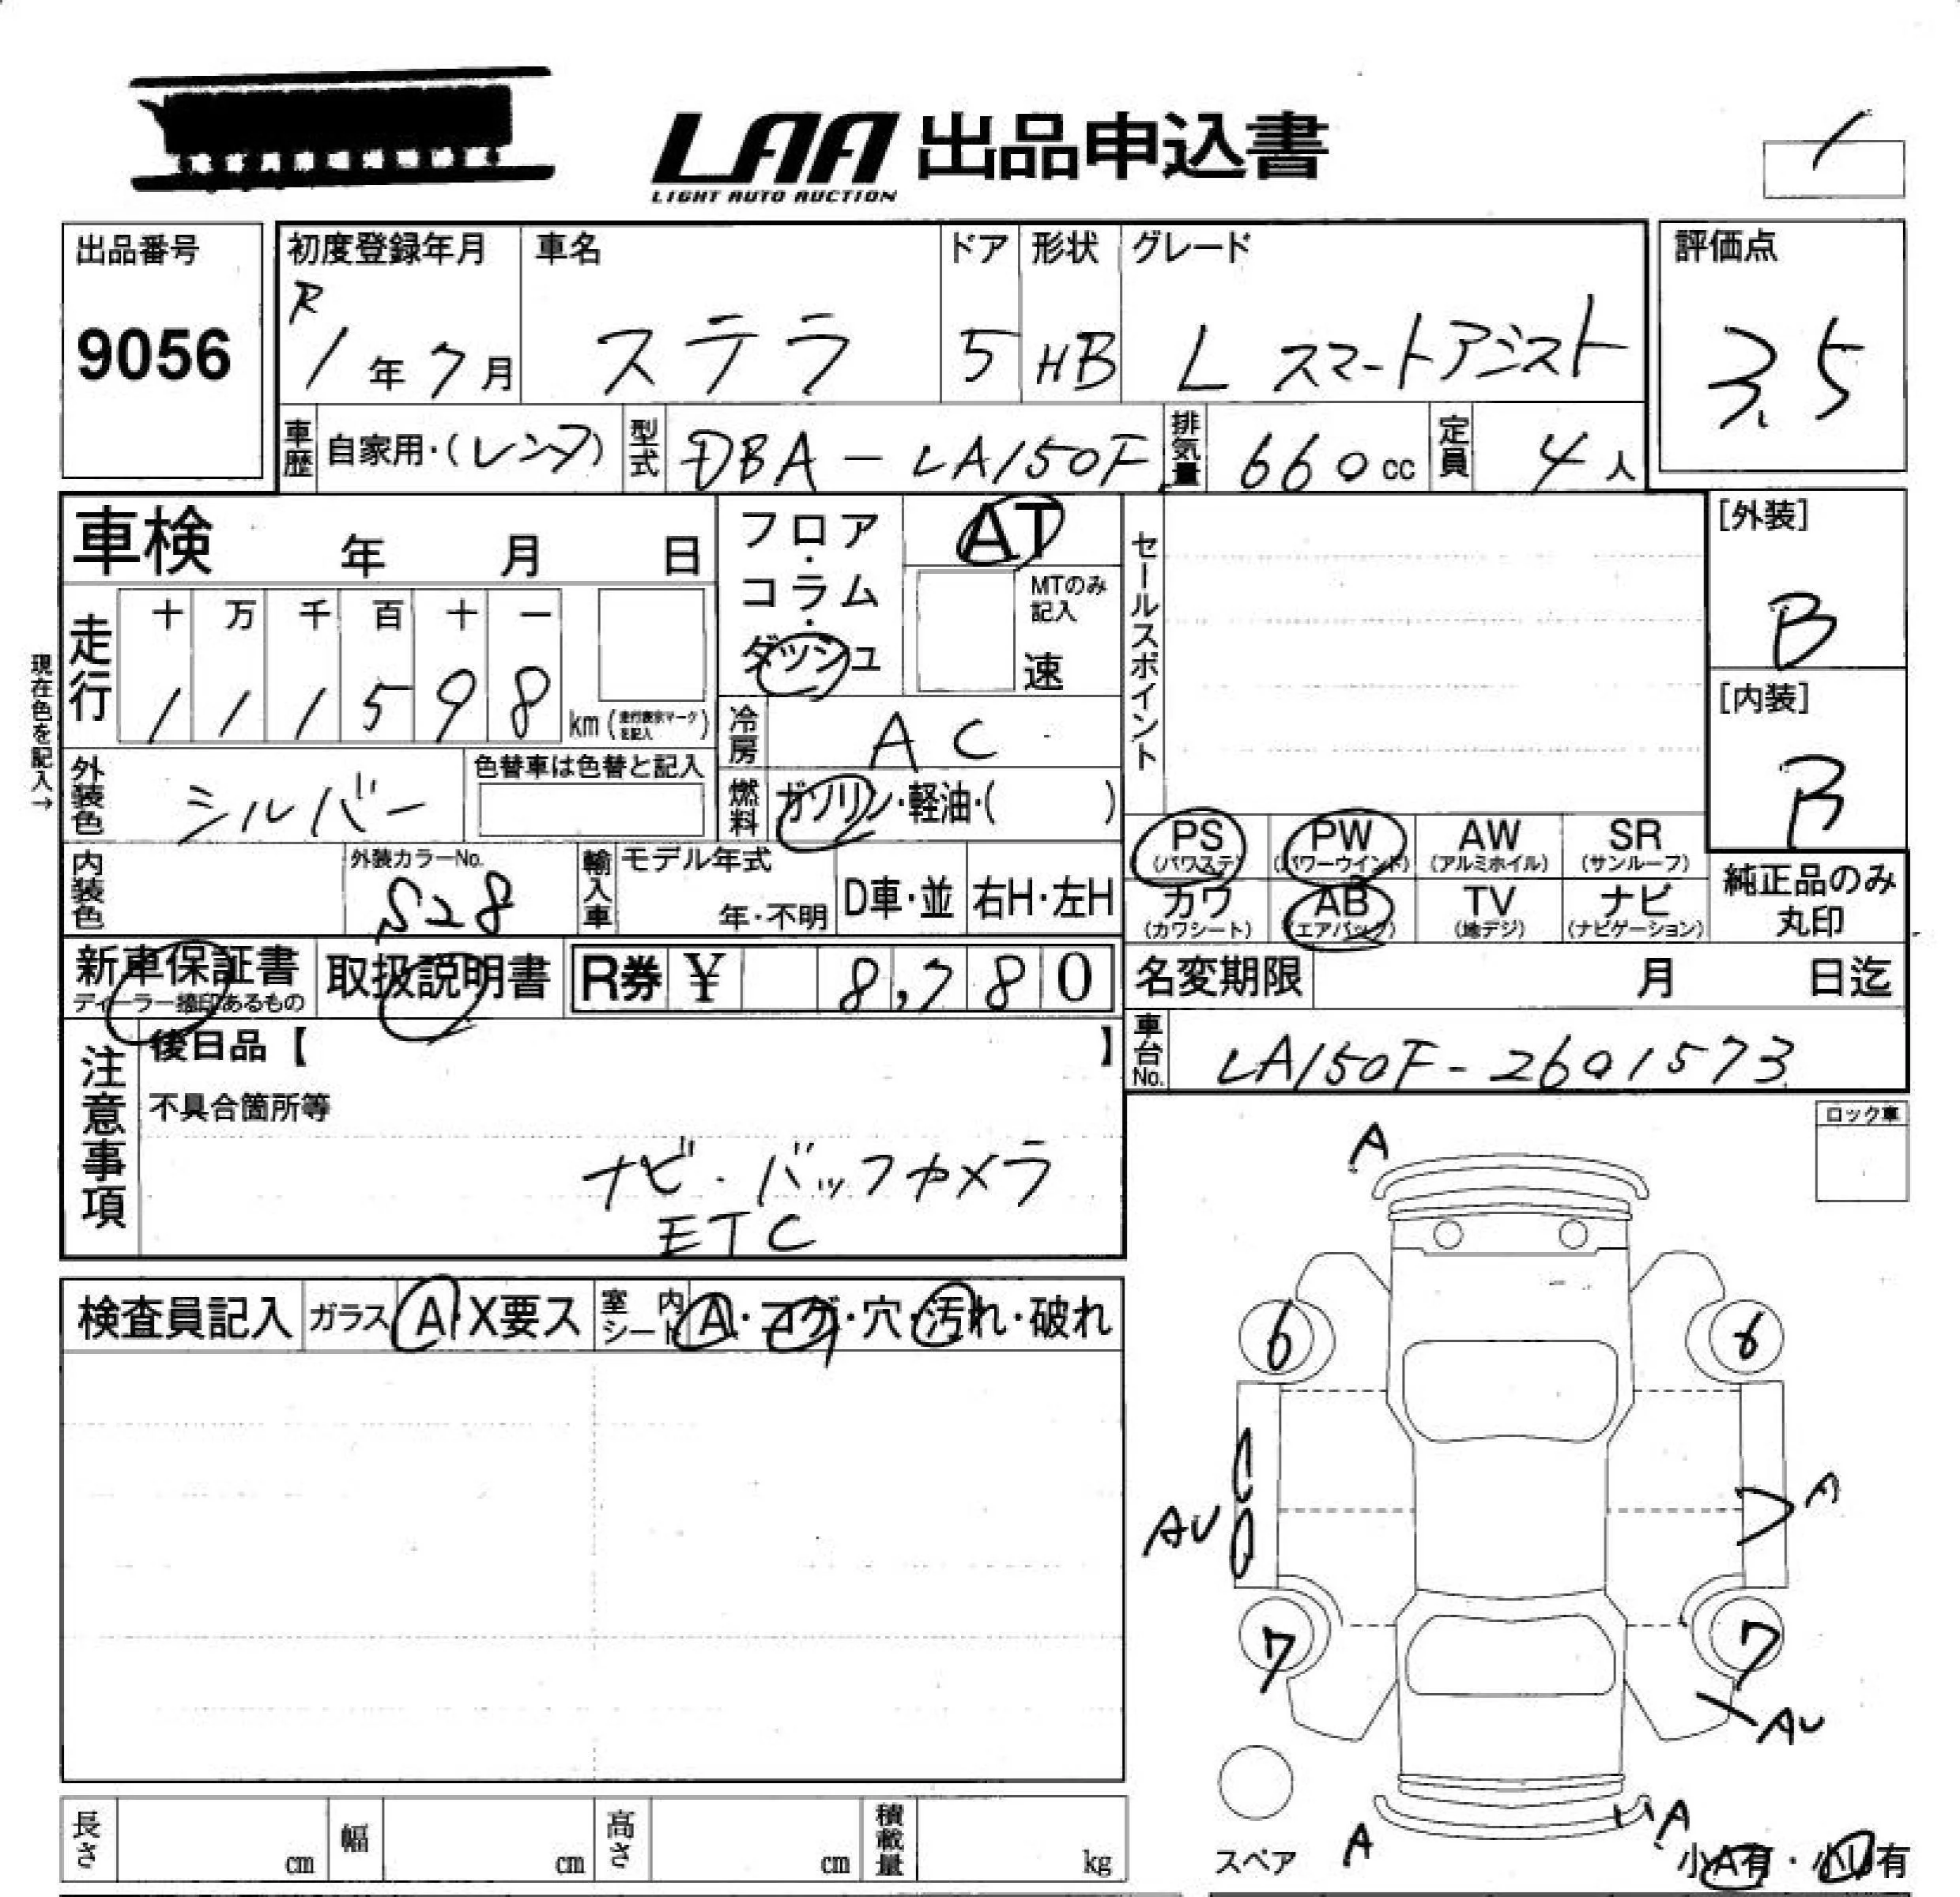 LAA 出品申込書
LIGHT AUTO AUCTION
出品番号
9056
初度登録年月
R
1年7月
車名
ステラ
ドア
5
形状
HB
グレード
L スマートアシスト
評価点
3.5
車歴 自家用・(レンタ)
型式 DBA-LA150F
排気量 660cc
定員 4人
車検 年 月 日
現在色を記入→
走行 十 万 千 百 十 一
1 1 1 5 9 8 km(走行表示マークを記入)
フロア・コラム・ダッシュ
AT
MTのみ記入
速
冷房 AC
燃料 ガソリン・軽油・( )
外装色 シルバー
色替車は色替と記入
内装色
外装カラーNo.
S28
輸入車 モデル年式
年・不明
D車・並
右H・左H
セールスポイント
[外装]
B
[内装]
B
PS (パワステ)
PW (パワーウインド)
AW (アルミホイル)
SR (サンルーフ)
カワ (カワシート)
AB (エアバック)
TV (地デジ)
ナビ (ナビゲーション)
純正品のみ丸印
新車保証書
ディーラー捺印あるもの
取扱説明書
R券 ¥ 8,780
名変期限 月 日迄
車台No. LA150F-2601573
注意事項
後日品【 】
不具合箇所等
ナビ・バックカメラ
ETC
ロック車
検査員記入 ガラス A・X要ス 室内シート A・コゲ・穴・汚れ・破れ
A
6 6
AU A
7 7
AU
A A
スペア
小A有・小U有
長さ cm 幅 cm 高さ cm 積載量 kg